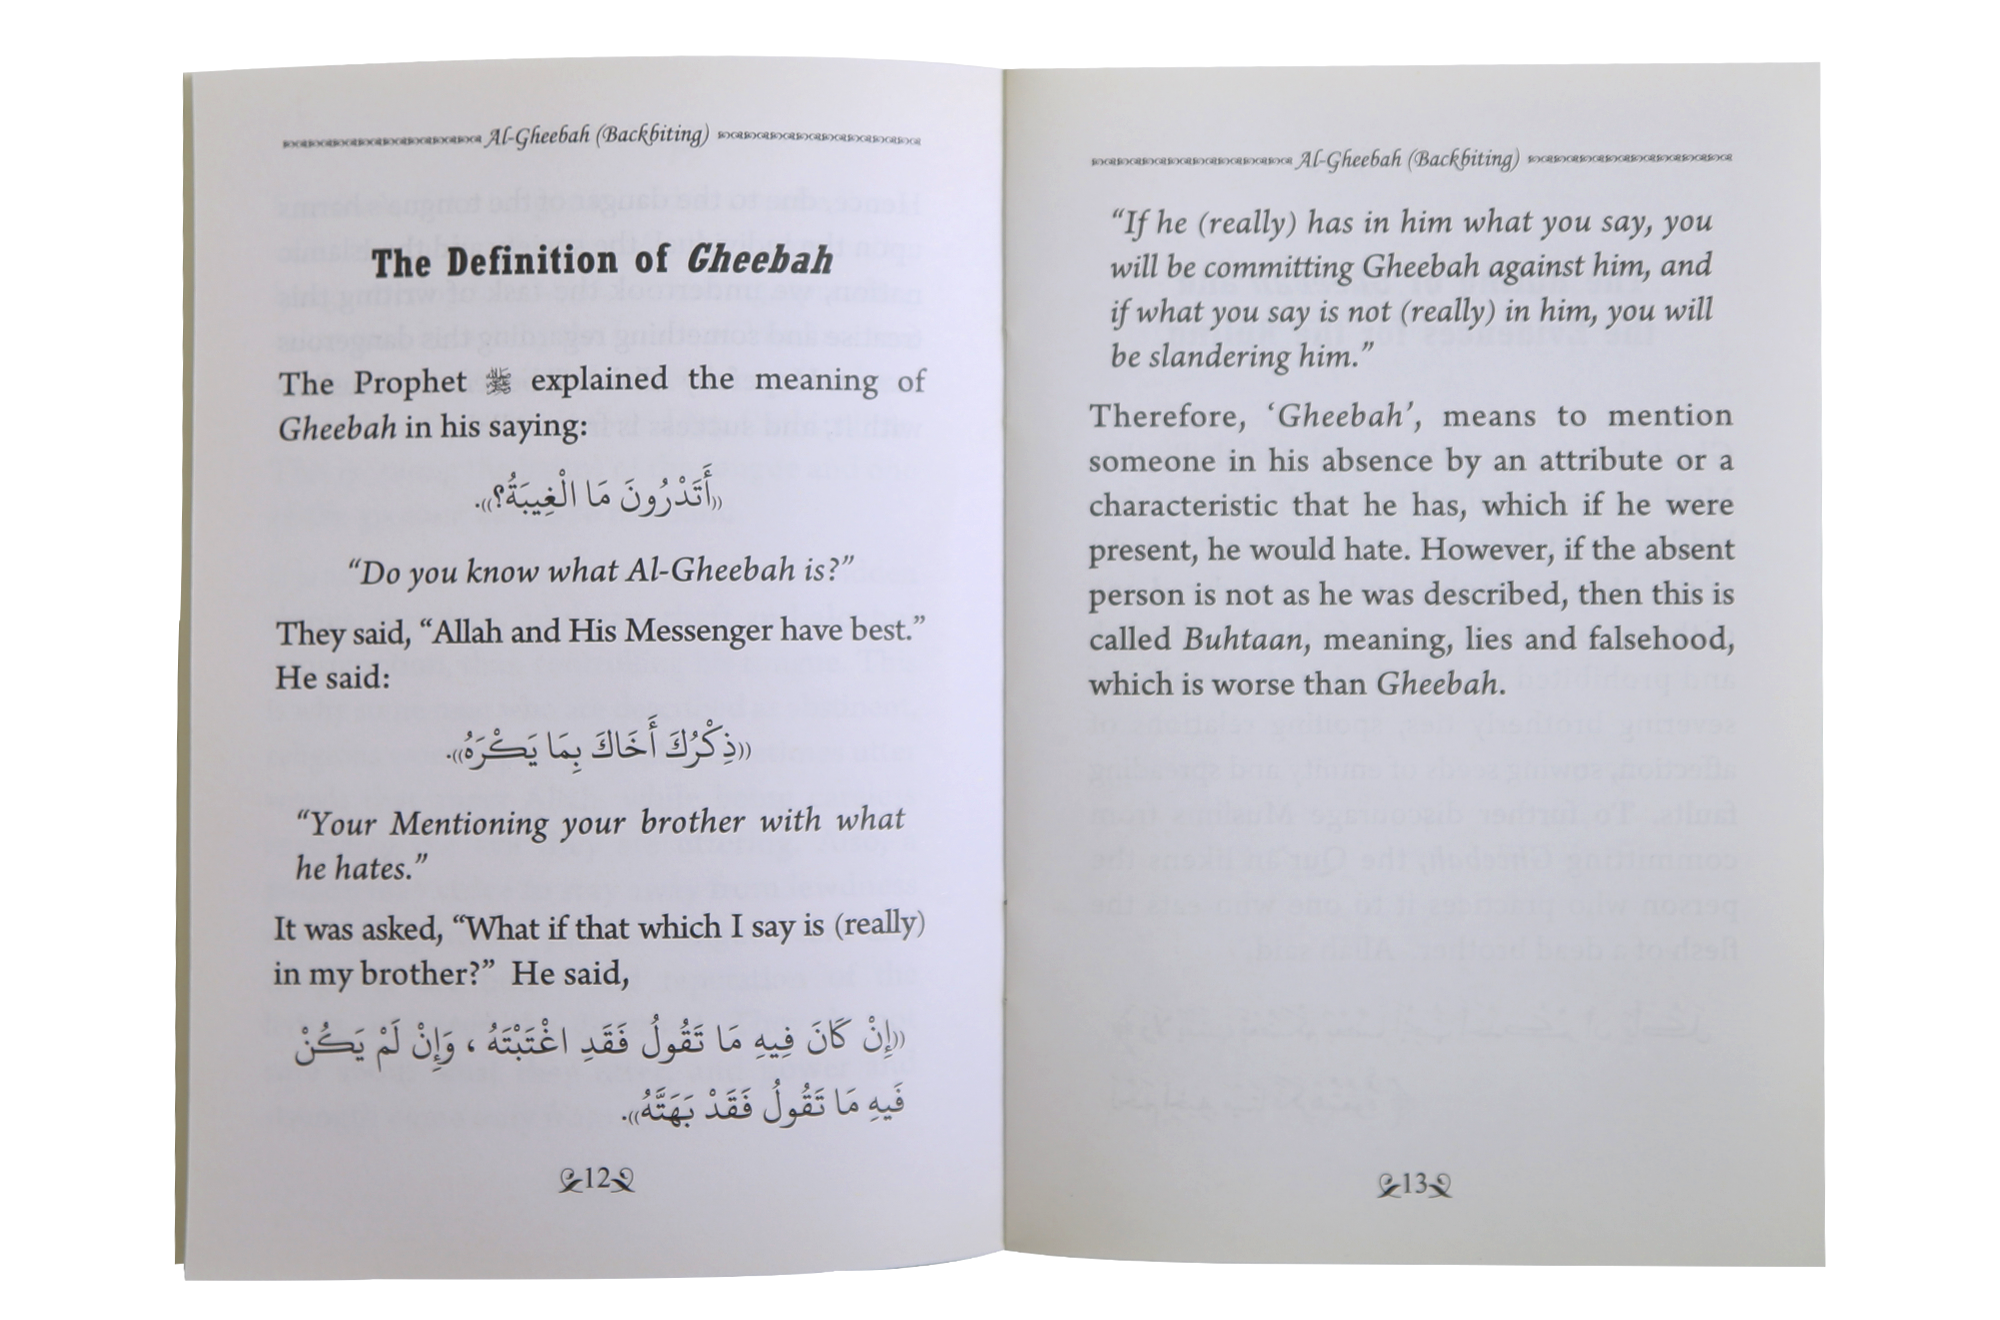 Al-Gheebah (Backbiting)
The Definition of Gheebah
The Prophet ﷺ explained the meaning of
Gheebah in his saying:
((أَتَدْرُونَ مَا الْغِيبَةُ؟)).
“Do you know what Al-Gheebah is?”
They said, “Allah and His Messenger have best.”
He said:
((ذِكْرُكَ أَخَاكَ بِمَا يَكْرَهُ)).
“Your Mentioning your brother with what
he hates.”
It was asked, “What if that which I say is (really)
in my brother?” He said,
((إِنْ كَانَ فِيهِ مَا تَقُولُ فَقَدِ اغْتَبْتَهُ ، وَإِنْ لَمْ يَكُنْ
فَيهِ مَا تَقُولُ فَقَدْ بَهَتَّهُ)).
12
Al-Gheebah (Backbiting)
“If he (really) has in him what you say, you
will be committing Gheebah against him, and
if what you say is not (really) in him, you will
be slandering him.”
Therefore, ‘Gheebah’, means to mention
someone in his absence by an attribute or a
characteristic that he has, which if he were
present, he would hate. However, if the absent
person is not as he was described, then this is
called Buhtaan, meaning, lies and falsehood,
which is worse than Gheebah.
13